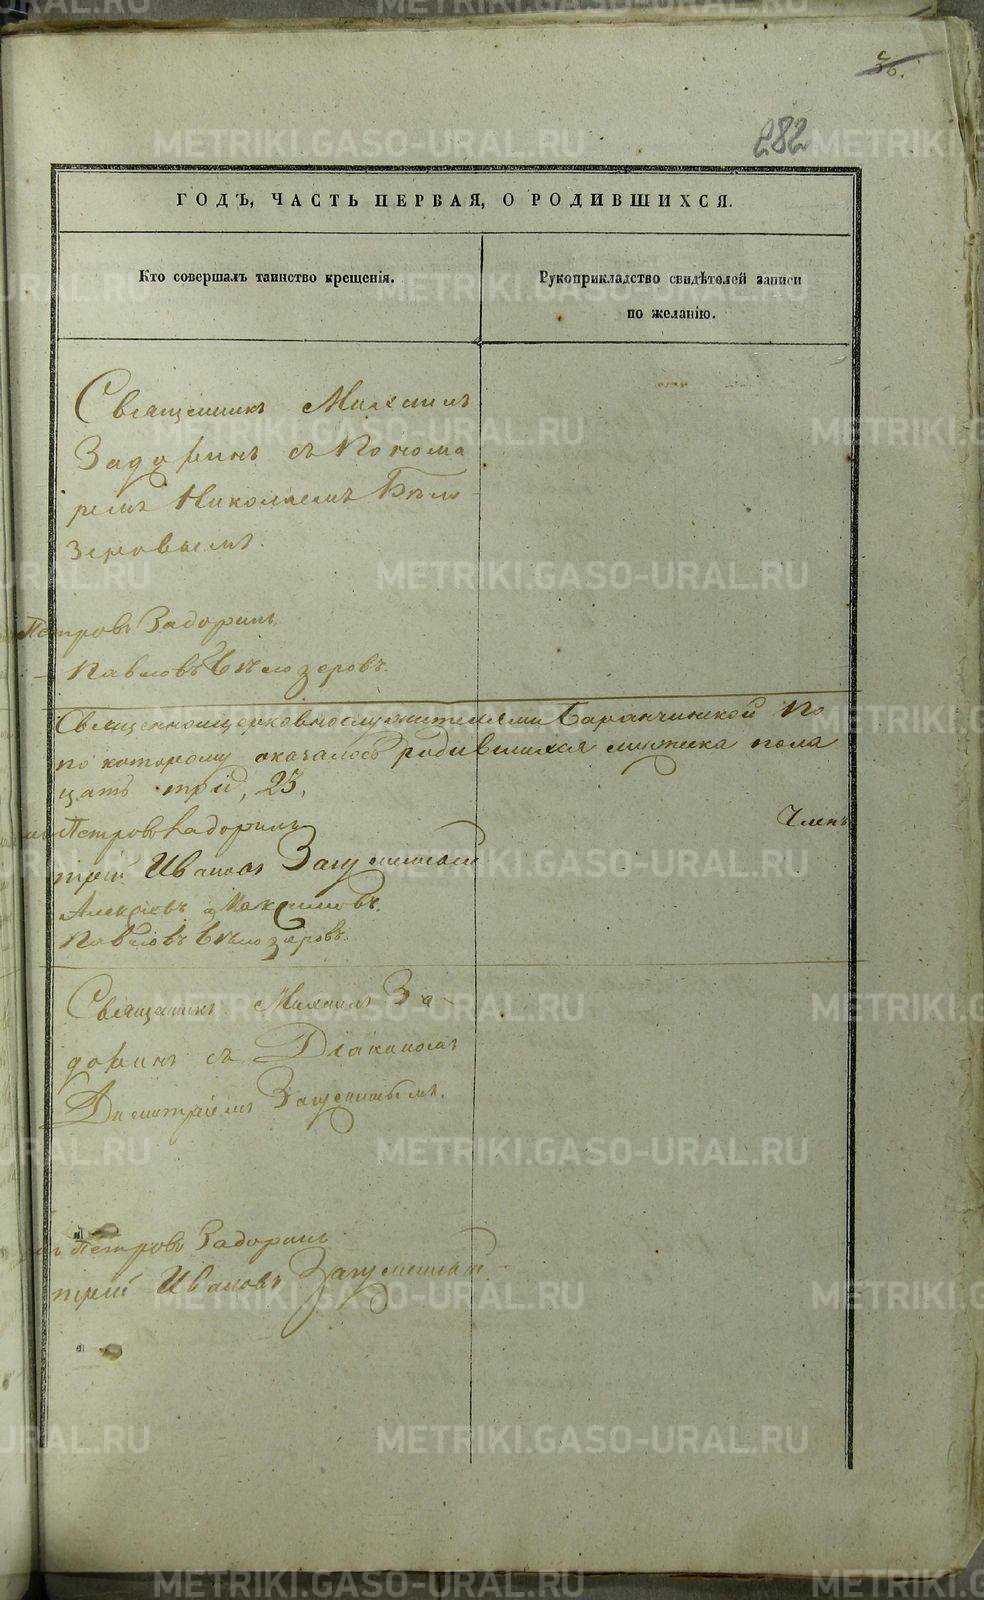 36.
282
ГОДЪ, ЧАСТЬ ПЕРВАЯ, О РОДИВШИХСЯ.
Кто совершалъ таинство крещенія.
Рукоприкладство свидѣтелей записи
по желанію.
Священникъ Михаилъ
Задоринъ съ Понома
ремъ Николаемъ Бѣло-
зеровымъ.
Петровъ Задоринъ
Павловъ Бѣлозеровъ.
Священноцерковнослужителями Баранчинской По
по которому оказалось родившихся мужеска пола
цать три, 23,
Петровъ Задоринъ
Членъ
трій Ивановъ
Алексѣевъ Максимовъ.
Павловъ Бѣлозеровъ.
Священникъ Михаилъ За-
доринъ съ Діакономъ
Димитріемъ
Петровъ Задоринъ
трій Ивановъ
METRIKI.GASO-URAL.RU